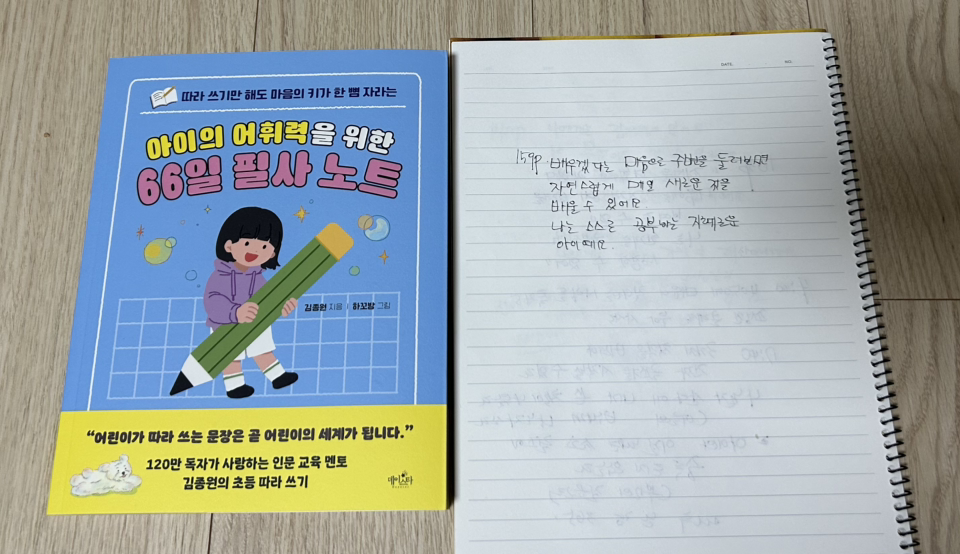 따라 쓰기만 해도 마음의 키가 한 뼘 자라는
아이의 어휘력을 위한
66일 필사 노트
김종원 지음 / 하꼬방 그림
“어린이가 따라 쓰는 문장은 곧 어린이의 세계가 됩니다.”
120만 독자가 사랑하는 인문 교육 멘토
김종원의 초등 따라 쓰기
데이스타
DATE.
NO.
159p 배우겠다는 마음으로 주변을 둘러보면
자연스럽게 매일 새로운 것을
배울 수 있어요
나는 스스로 공부하는 지혜로운
아이예요.